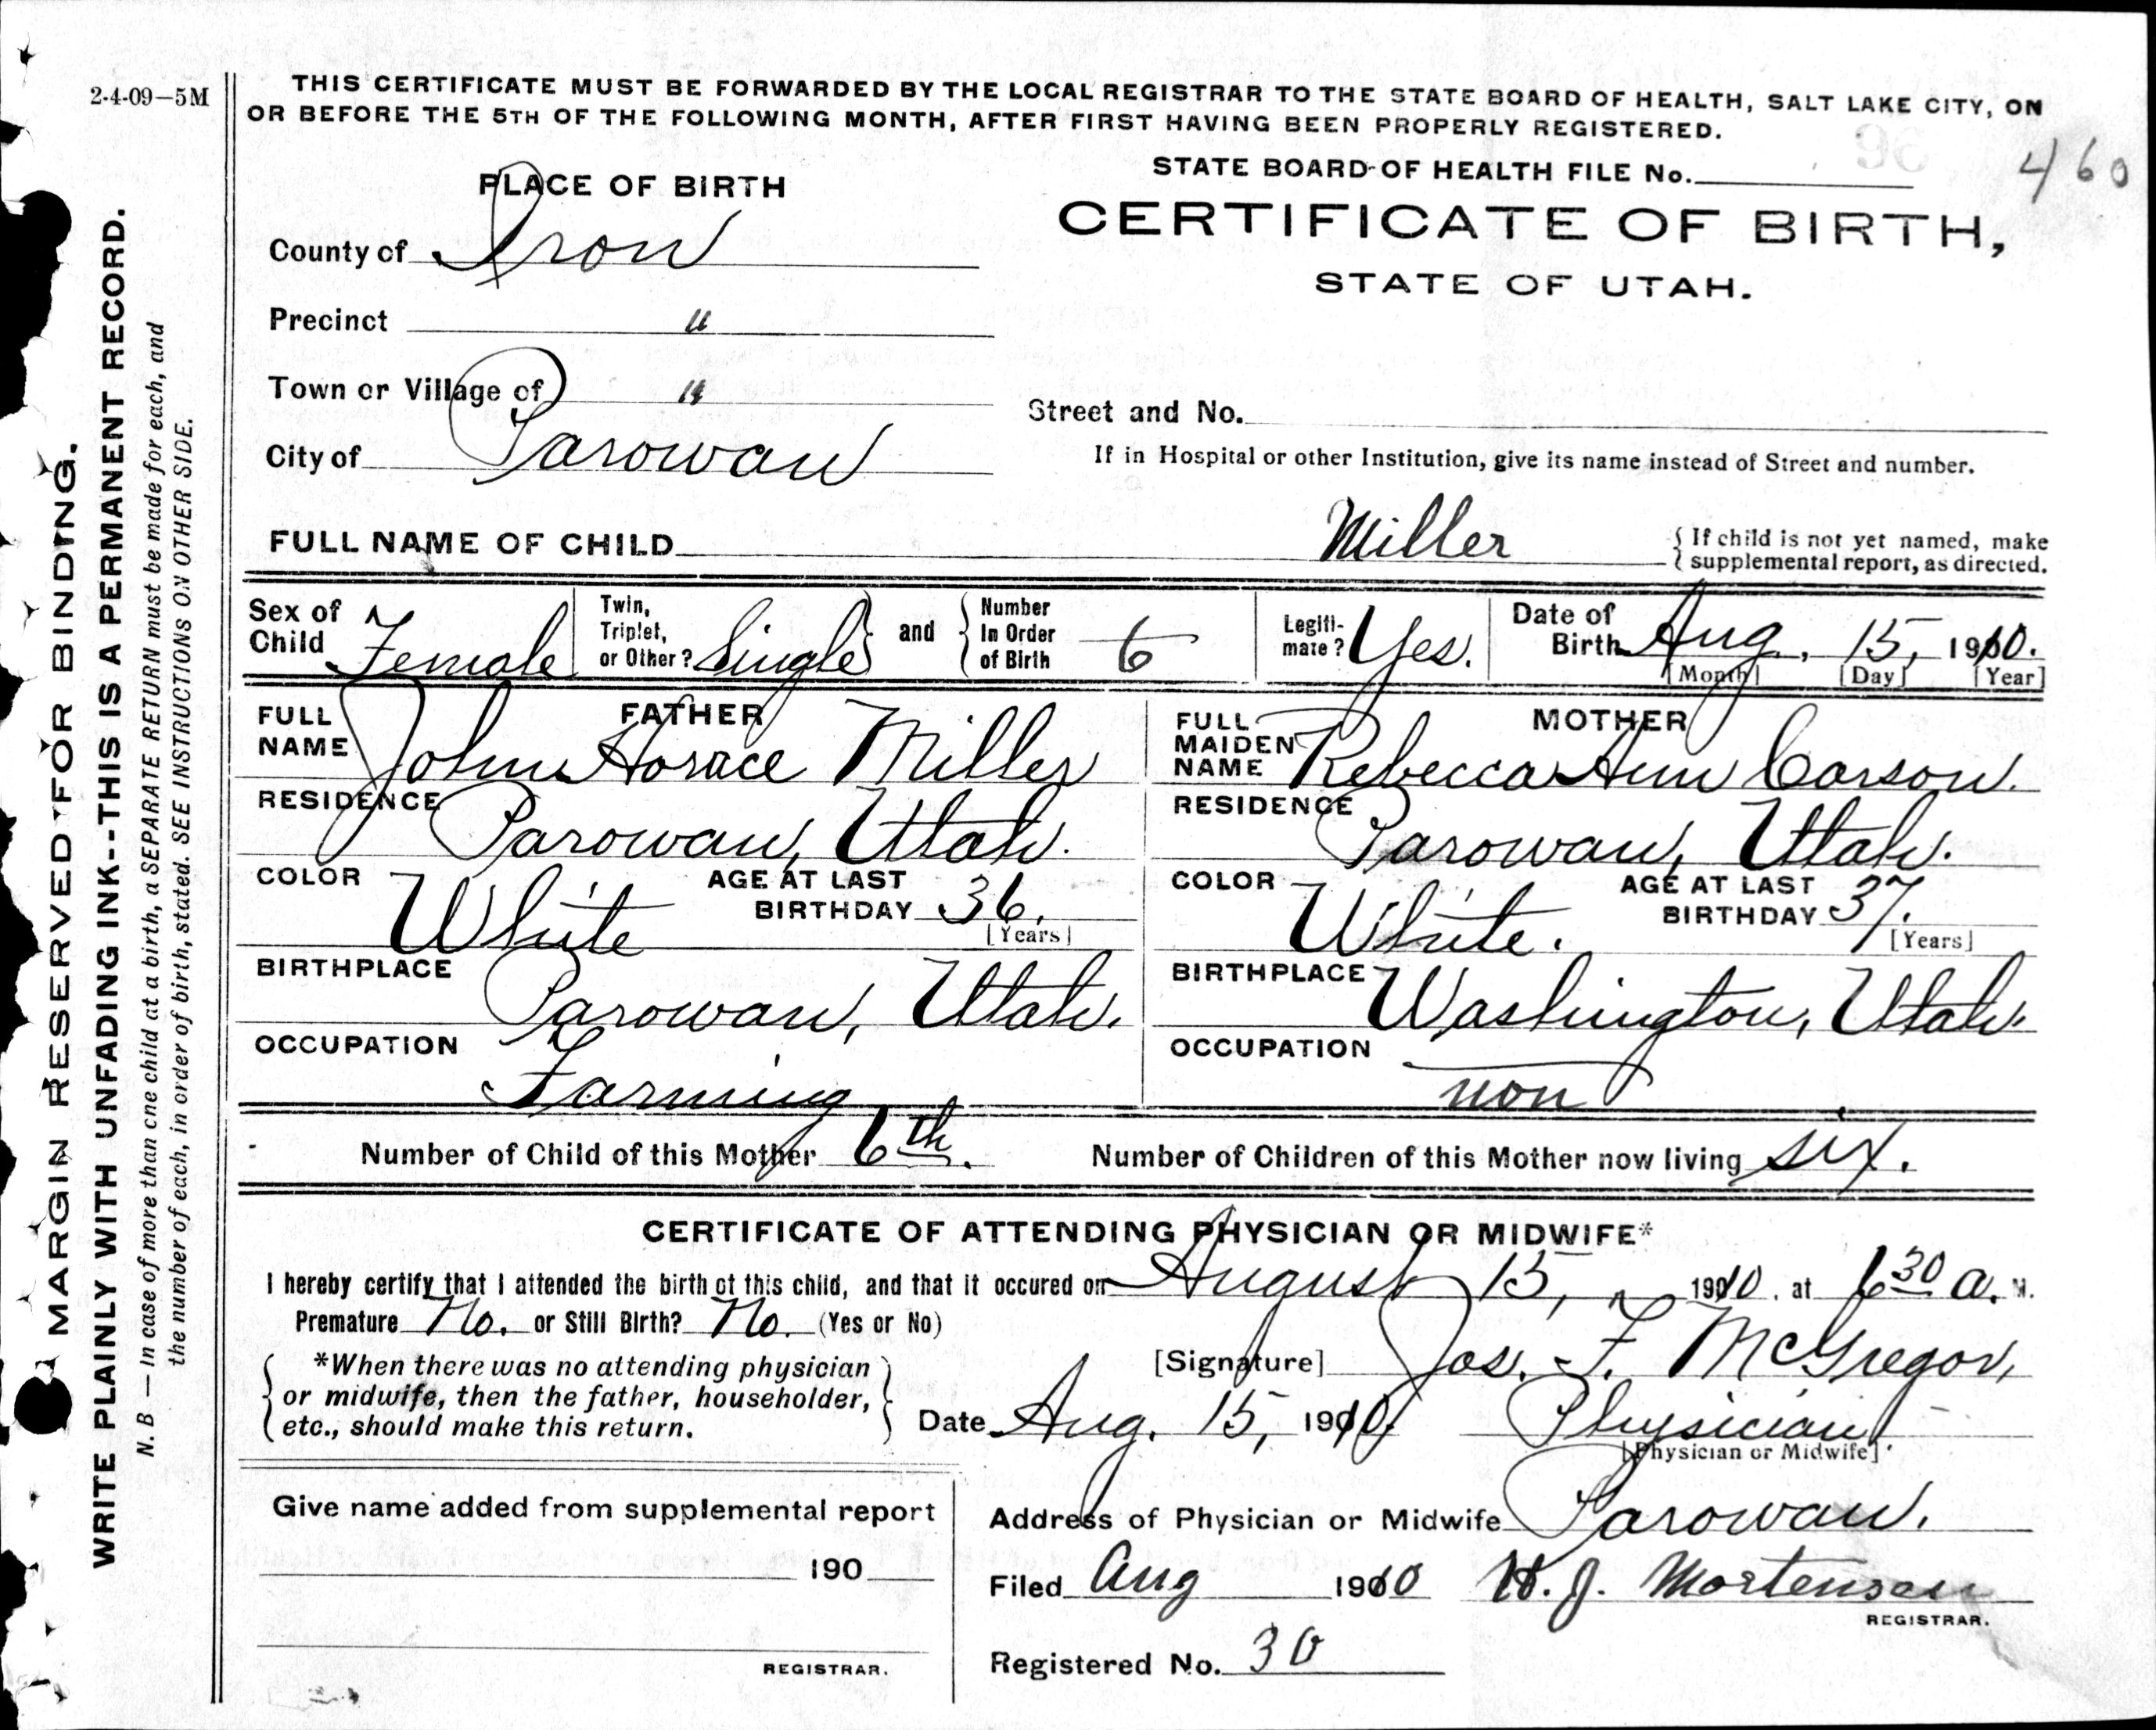 2-4-09—5M
THIS CERTIFICATE MUST BE FORWARDED BY THE LOCAL REGISTRAR TO THE STATE BOARD OF HEALTH, SALT LAKE CITY, ON
OR BEFORE THE 5TH OF THE FOLLOWING MONTH, AFTER FIRST HAVING BEEN PROPERLY REGISTERED.
STATE BOARD OF HEALTH FILE No. 460
CERTIFICATE OF BIRTH,
STATE OF UTAH.
PLACE OF BIRTH
County of Iron
Precinct "
Town or Village of "
City of Parowan
Street and No.
If in Hospital or other Institution, give its name instead of Street and number.
FULL NAME OF CHILD Miller
{ If child is not yet named, make
{ supplemental report, as directed.
Sex of Child Female
Twin, Triplet, or Other? Single } and { Number In Order of Birth 6
Legiti-mate? Yes.
Date of Birth Aug., 15, 1910.
[Month] [Day] [Year]
FATHER
FULL NAME John Horace Miller
RESIDENCE Parowan, Utah.
COLOR White
AGE AT LAST BIRTHDAY 36.
[Years]
BIRTHPLACE Parowan, Utah.
OCCUPATION Farming
MOTHER
FULL MAIDEN NAME Rebecca Ann Carson.
RESIDENCE Parowan, Utah.
COLOR White.
AGE AT LAST BIRTHDAY 37.
[Years]
BIRTHPLACE Washington, Utah.
OCCUPATION non
Number of Child of this Mother 6th. Number of Children of this Mother now living six.
CERTIFICATE OF ATTENDING PHYSICIAN OR MIDWIFE*
I hereby certify that I attended the birth of this child, and that it occured on August 15, 1910. at 6 30 a. M.
Premature No. or Still Birth? No. (Yes or No)
*When there was no attending physician
or midwife, then the father, householder,
etc., should make this return.
[Signature] Jos. F. McGregor,
Date Aug. 15, 1910 Physician
[Physician or Midwife]
Give name added from supplemental report
190
REGISTRAR.
Address of Physician or Midwife Parowan.
Filed Aug 1910 H. J. Mortensen
REGISTRAR.
Registered No. 30
MARGIN RESERVED FOR BINDING.
WRITE PLAINLY WITH UNFADING INK--THIS IS A PERMANENT RECORD.
N. B — In case of more than one child at a birth, a SEPARATE RETURN must be made for each, and
the number of each, in order of birth, stated. SEE INSTRUCTIONS ON OTHER SIDE.